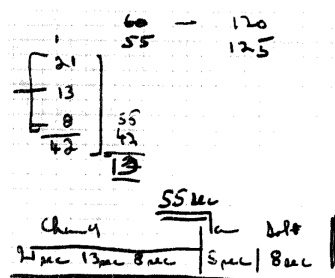 60 — 120
55 125
1
21
13
8
42
55
42
13
55 sec
21 sec 13 sec 8 sec 5 sec 8 sec